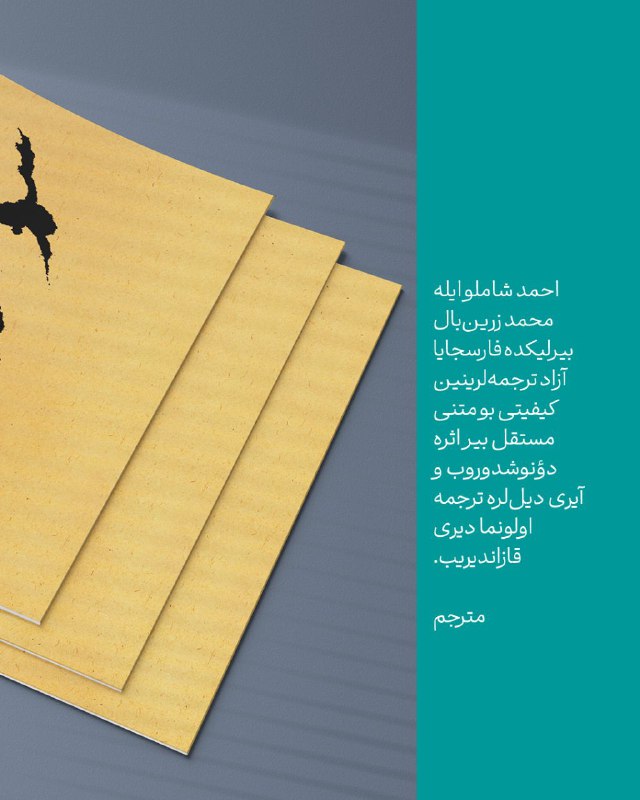 احمد شاملو ایله
محمد زرین‌بال
بیرلیکده فارسجایا
آزاد ترجمه‌لرینین
کیفیتی بو متنی
مستقل بیر اثره
دؤنوشدوروب و
آیری دیل‌لره ترجمه
اولونما دیری
قازاندیریب.
مترجم